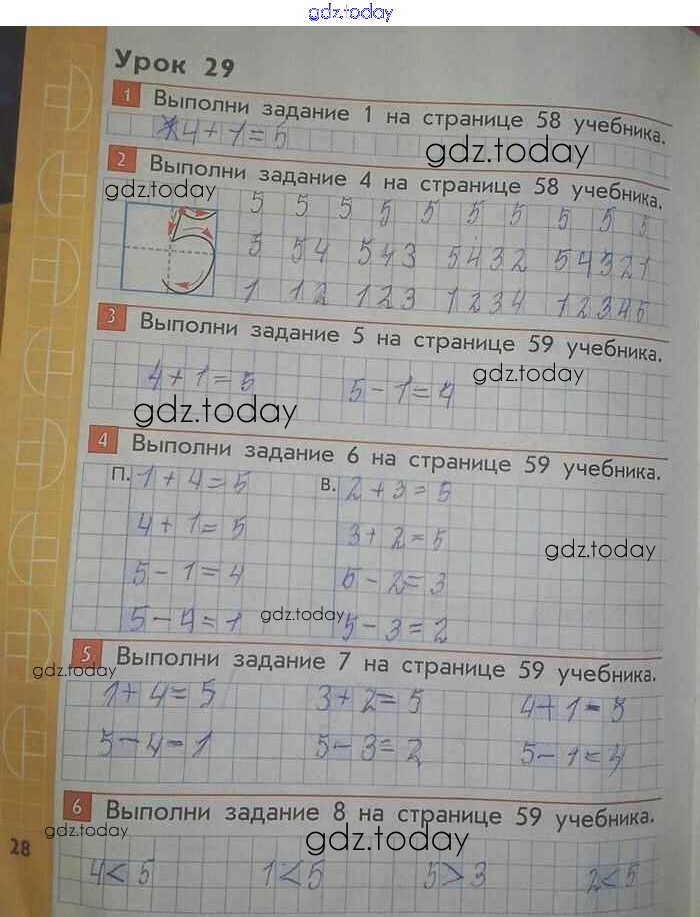 gdz.today
Урок 29
1 Выполни задание 1 на странице 58 учебника.
4+1=5
gdz.today
2 Выполни задание 4 на странице 58 учебника.
gdz.today
5 5 5 5 5 5 5 5 5 5
5 54 543 5432 54321
1 12 123 1234 12345
3 Выполни задание 5 на странице 59 учебника.
4+1=5 5-1=4
gdz.today
gdz.today
4 Выполни задание 6 на странице 59 учебника.
П. 1+4=5 В. 2+3=5
4+1=5 3+2=5
gdz.today
5-1=4 5-2=3
5-4=1 5-3=2
gdz.today
5 Выполни задание 7 на странице 59 учебника.
gdz.today
1+4=5 3+2=5 4+1=5
5-4=1 5-3=2 5-1=4
6 Выполни задание 8 на странице 59 учебника.
gdz.today
gdz.today
28
4<5 1<5 5>3 2<5